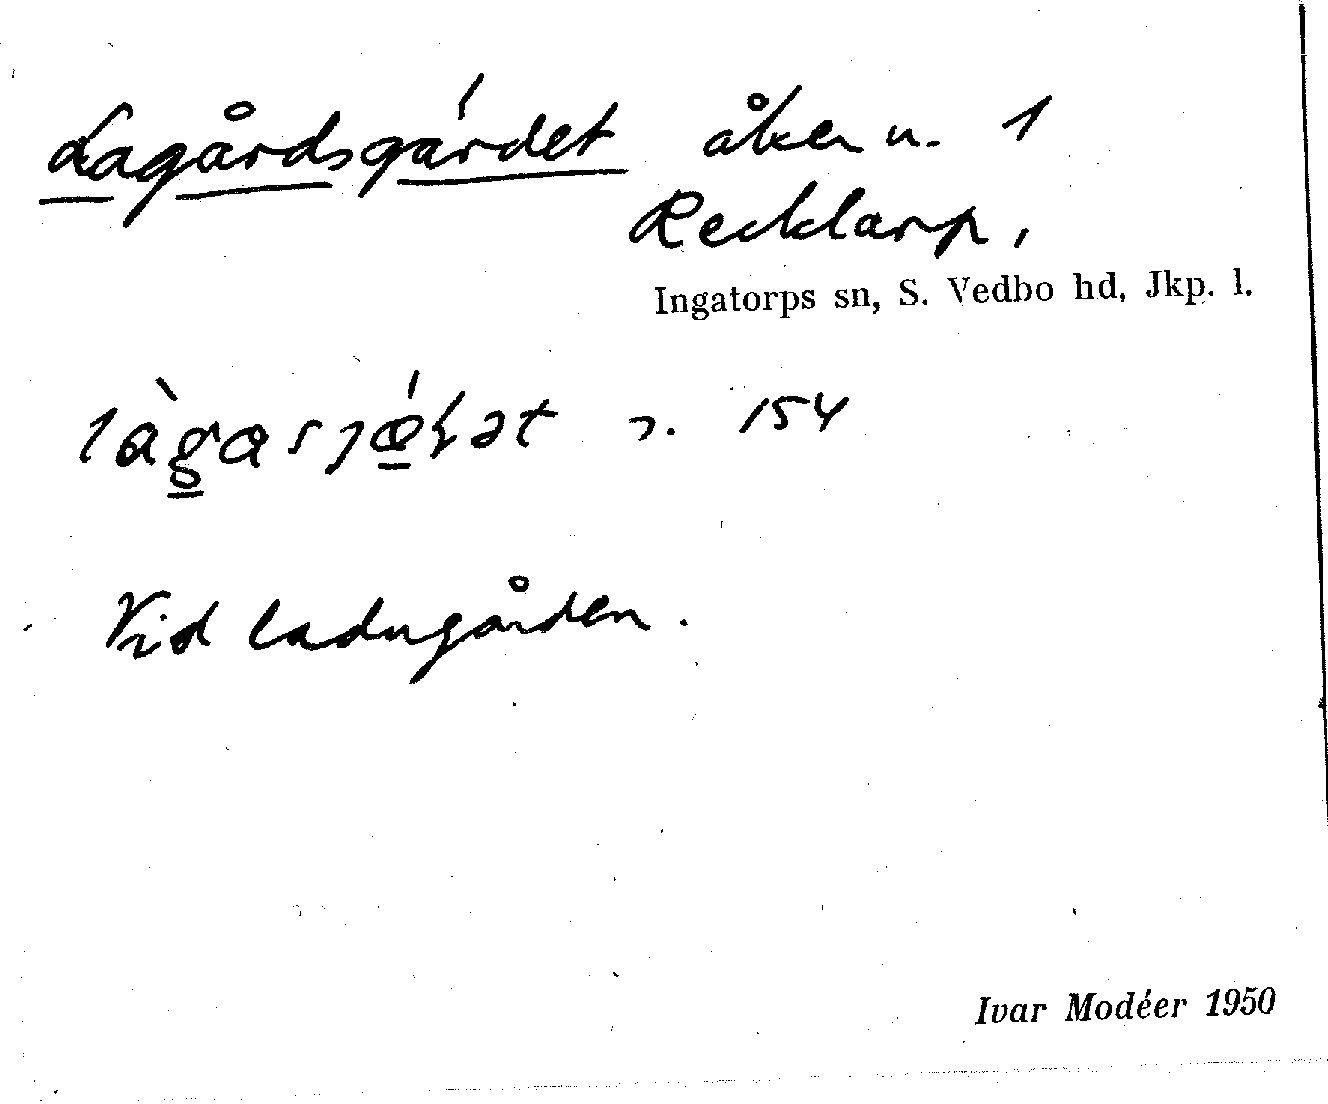 Lagårdsgärdet åker u. 1
Recklarp,
Ingatorps sn, S. Vedbo hd, Jkp. l.
154
Vid ladugården.
Ivar Modéer 1950